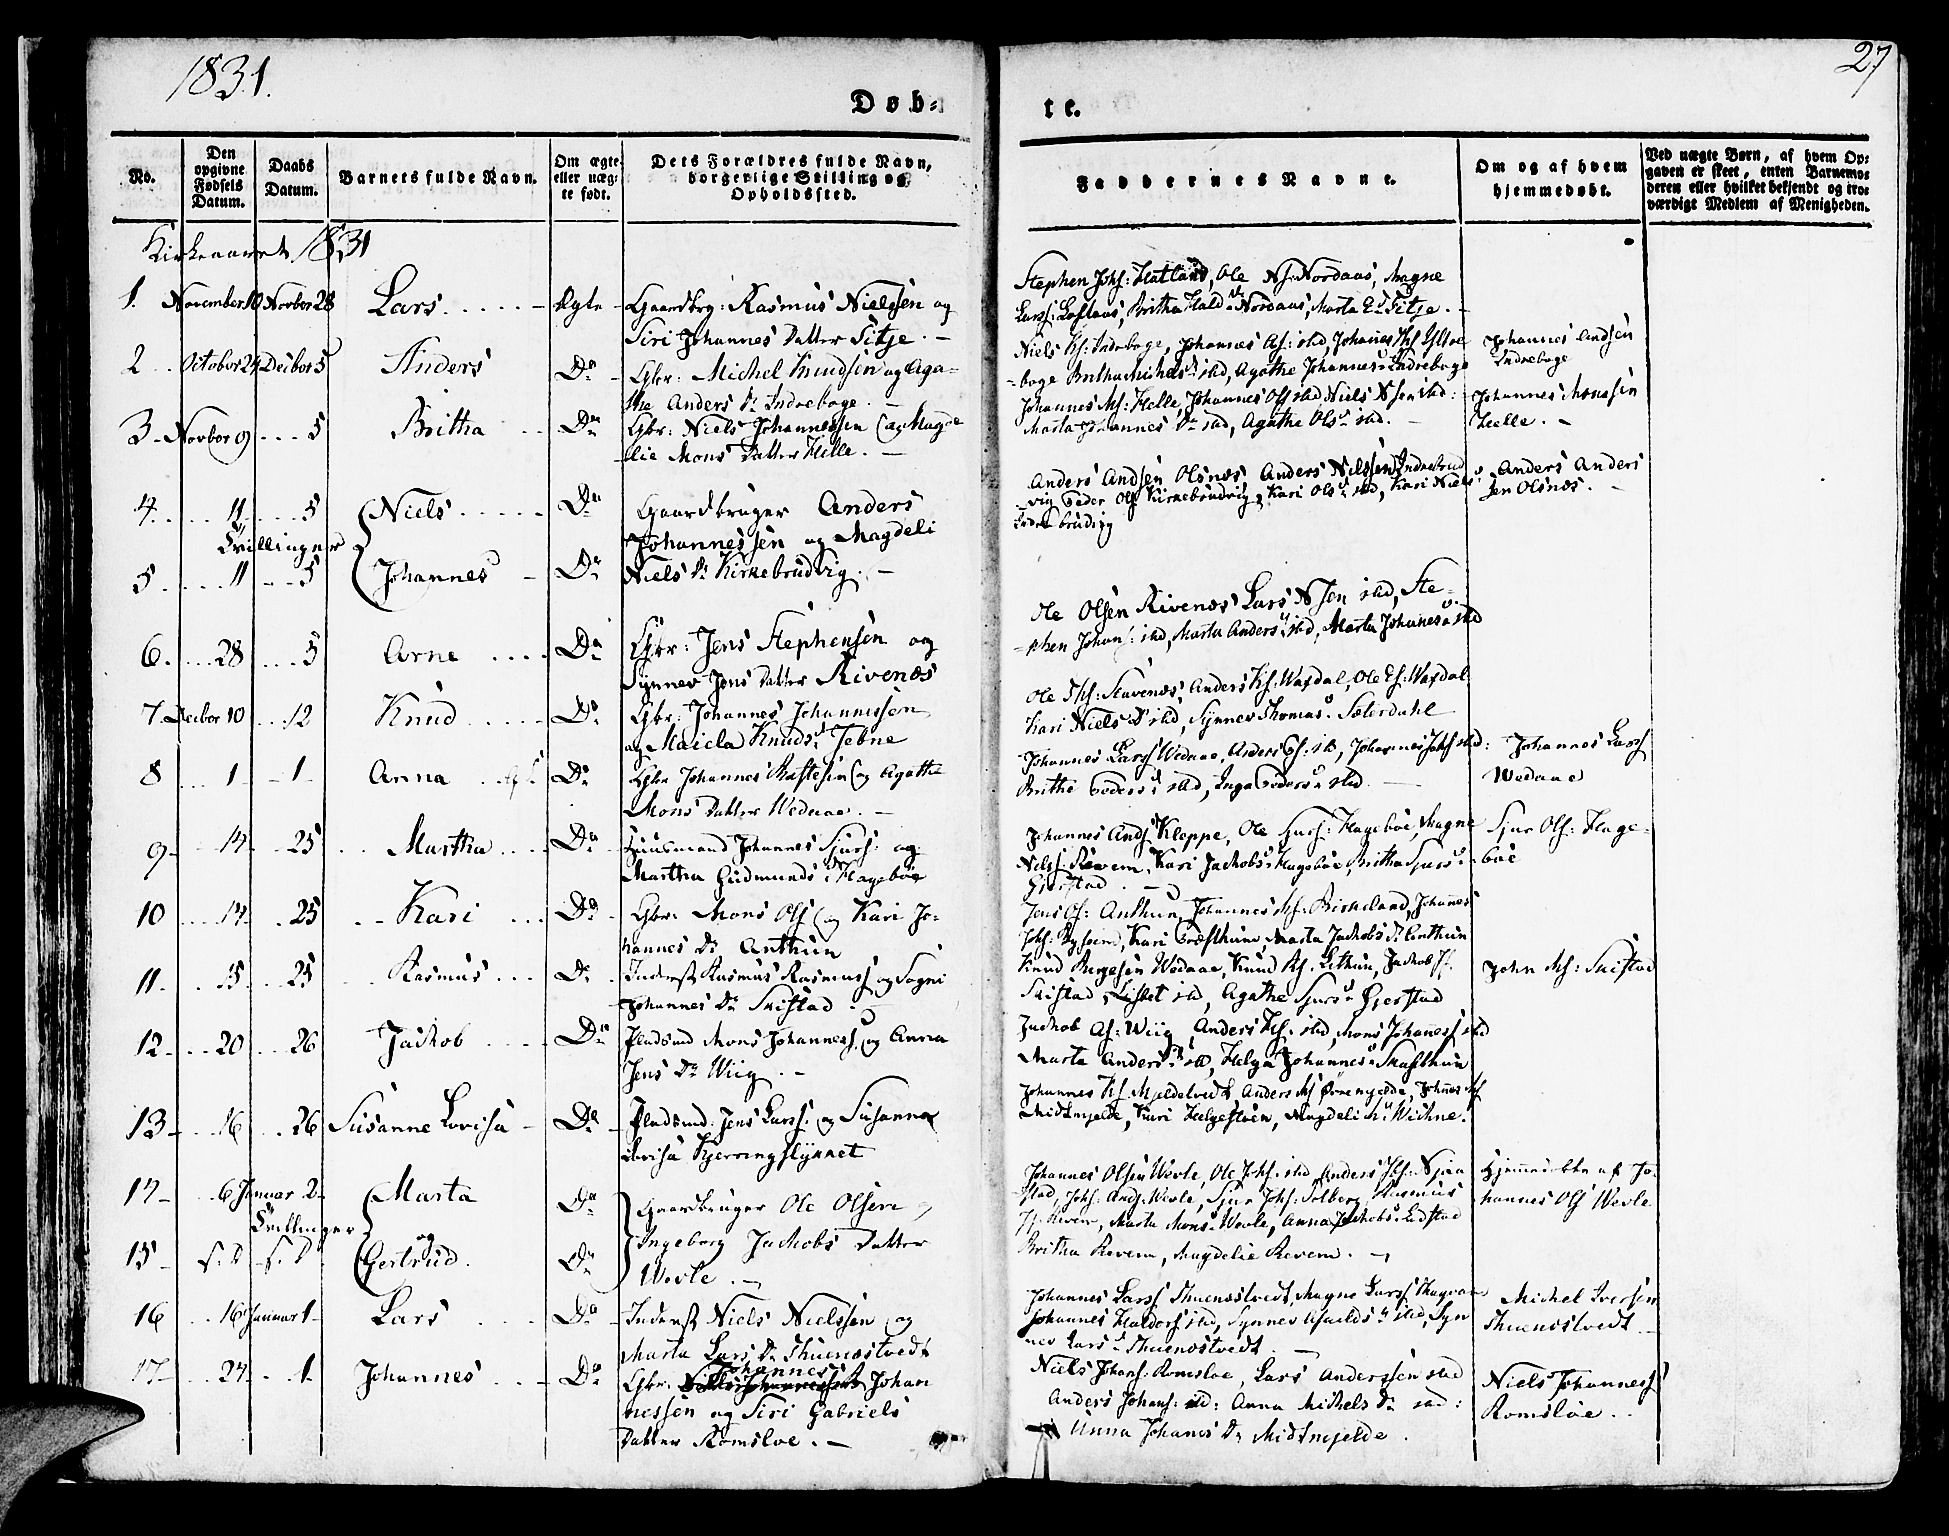 1831.
27
Døbte.
No.
Den opgivne Fødsels Datum.
Daabs Datum.
Barnets fulde Navn.
Om ægte eller uægte født.
Dets Forældres fulde Navn, borgerlige Stilling og Opholdssted.
Faddernes Navne.
Om og af hvem hjemmedøbt.
Ved uægte Børn, af hvem Opgaven er skeet, enten Barnemoderen eller hvilket bekjendt og troværdigt Medlem af Menigheden.
Kirkeaaret 1831
1. November 10 Novbor 28 Lars Ægte Gaardbrg: Rasmus Nielssen og
Siri Johannes Datter Fitje.
Stephen Johs: Hatland, Ole Nordaas, Magne
Larss: Loftaas, Britha Hald Nordaas, Marta Fitje.
2 October 24 Decbor 5 Anders Do Gbr: Michel Knudsen og Aga-
the Anders Dr Indrebøge.
Niels Ks: Indrebøge, Johannes As: sted, Johannes
bøge Britha Michels sted, Agathe Johannes Indrebøge
Johannes Andsen
Indrebøge
3 Novbor 9 5 Britha Do Gbr: Niels Johannessen og Magde
lie Mons Datter Helle.
Johannes Ms: Helle, Johannes Ols sted Niels N sen sted:
Marta Johannes Dr sted, Agathe Ols sted.
Johannes Monssen
Helle.
4 11 5 Niels Do Gaardbruger Anders
Tvillinger
Johannessen og Magdeli
5 11 5 Johannes Do Niels Dr Kirkebrudvig.
Anders Andsen Olsnæs, Anders Nilssen Indrebrud
vig Peder Ols Kirkebrudvig, Kari Ols sted, Kari Niels
Indrebrudvig
Anders Anders
sen Olsnæs.
6 28 5 Arne Do Gbr: Jens Stephensen og
Synnev Jens Datter Rivenæs
Ole Olsen Rivenæs Lars N sen sted, Ste-
phen Johans: sted, Marta Anders sted, Marta Johannes sted
7 Decbor 10 12 Knud Do Gbr: Johannes Johannessen
og Knuds Tebne
Ole Stavenæs, Anders Ks: Waxdal, Ole Es: Waxdal
Kari Niels Dr sted, Synnev Thomas Sælerdahl
8 1 1 Anna Do Gbr Johannes og Agathe
Mons Datter Wedaae.
Johannes Larss Wedaae, Anders sted, Johannes Johs sted:
Brithe Peders sted, Inga Peders sted
Johannes Larss
Wedaae
9 14 25 Martha Do Huusmand Johannes Sjurs: og
Martha Gudmunds Dr Hagebøe
Johannes Ands Kleppe, Ole Sjurs: Hagebøe, Magne
Nilss: Revem, Kari Jachobs Hagebøe, Britha Sjurs
Gjerstad.
Sjur Ols: Hage-
bøe
10 14 25 Kari Do Gbr: Mons Ols og Kari Jo-
hannes Dr Anthun
Jens Anthun, Johannes Ms: Birkeland, Johannes
Kari Marta Jachobs Dr Anthun
11 5 25 Rasmus Do Inderst Rasmus Rasmuss og Sogni
Johannes Dr Skistad
Knud Bergesen Wedaae, Knud Lethun, Jachob
Skistad, Lisbet sted, Agathe Sjurs Gjerstad
John Ms: Skistad
12 20 26 Jachob Do Pladsmd Mons Johanness. og Anna
Jens Dr Wiig.
Jachob As: Wiig, Anders sted, Mons Johaness sted
Marta Anders sted, Helga Johannes Skafthun
13 16 26 Susanne Lovisa Do Pladsmd. Jens Larss: og Susanna
Lovisa Kjerringslynnet
Johannes Mjeldetvedt, Anders Ms Øvremjelde, Johnes Ms
Midtmjelde, Kari Helgesløen, Magdeli Wichne.
14 6 Januar 2 Marta Do Gaardbruger Ole Olsen
Tvillinger og
Ingeborg Jachobs Datter
15 Gertrud. Do Wevle.
Johannes Olsen Wevle, Ole Johs: sted, Anders
stad, Johs: Ands Wevle, Sjur Johs: Solberg, Rasmus
Revem, Marta Mons Wevle, Anna Jachobs
Britha Revem, Magdelie Revem.
Hjemmedøbte af Jo-
hannes Ols Wevle
16 16 Januar 1 Lars Do Inderst Niels Nielssen og
Marta Lars Dr Thuenæstvedt
Johannes Larss Thuenæstvedt, Magne Larss
Johannes Haldors sted, Synnev sted, Syn
nev Lars Thuenæstvedt.
Michel Iversen
Thuenæstvedt
17 24 1 Johannes Do Gbr: Johannes Johan
nessen og Siri Gabriels
Datter Romsloe.
Niels Johans: Romsloe, Lars Anderssen sted
Anders Johans: sted: Anna Michels Dr sted:
Anna Johanes Dr Midtmjelde.
Niels Johanness
Romsloe.